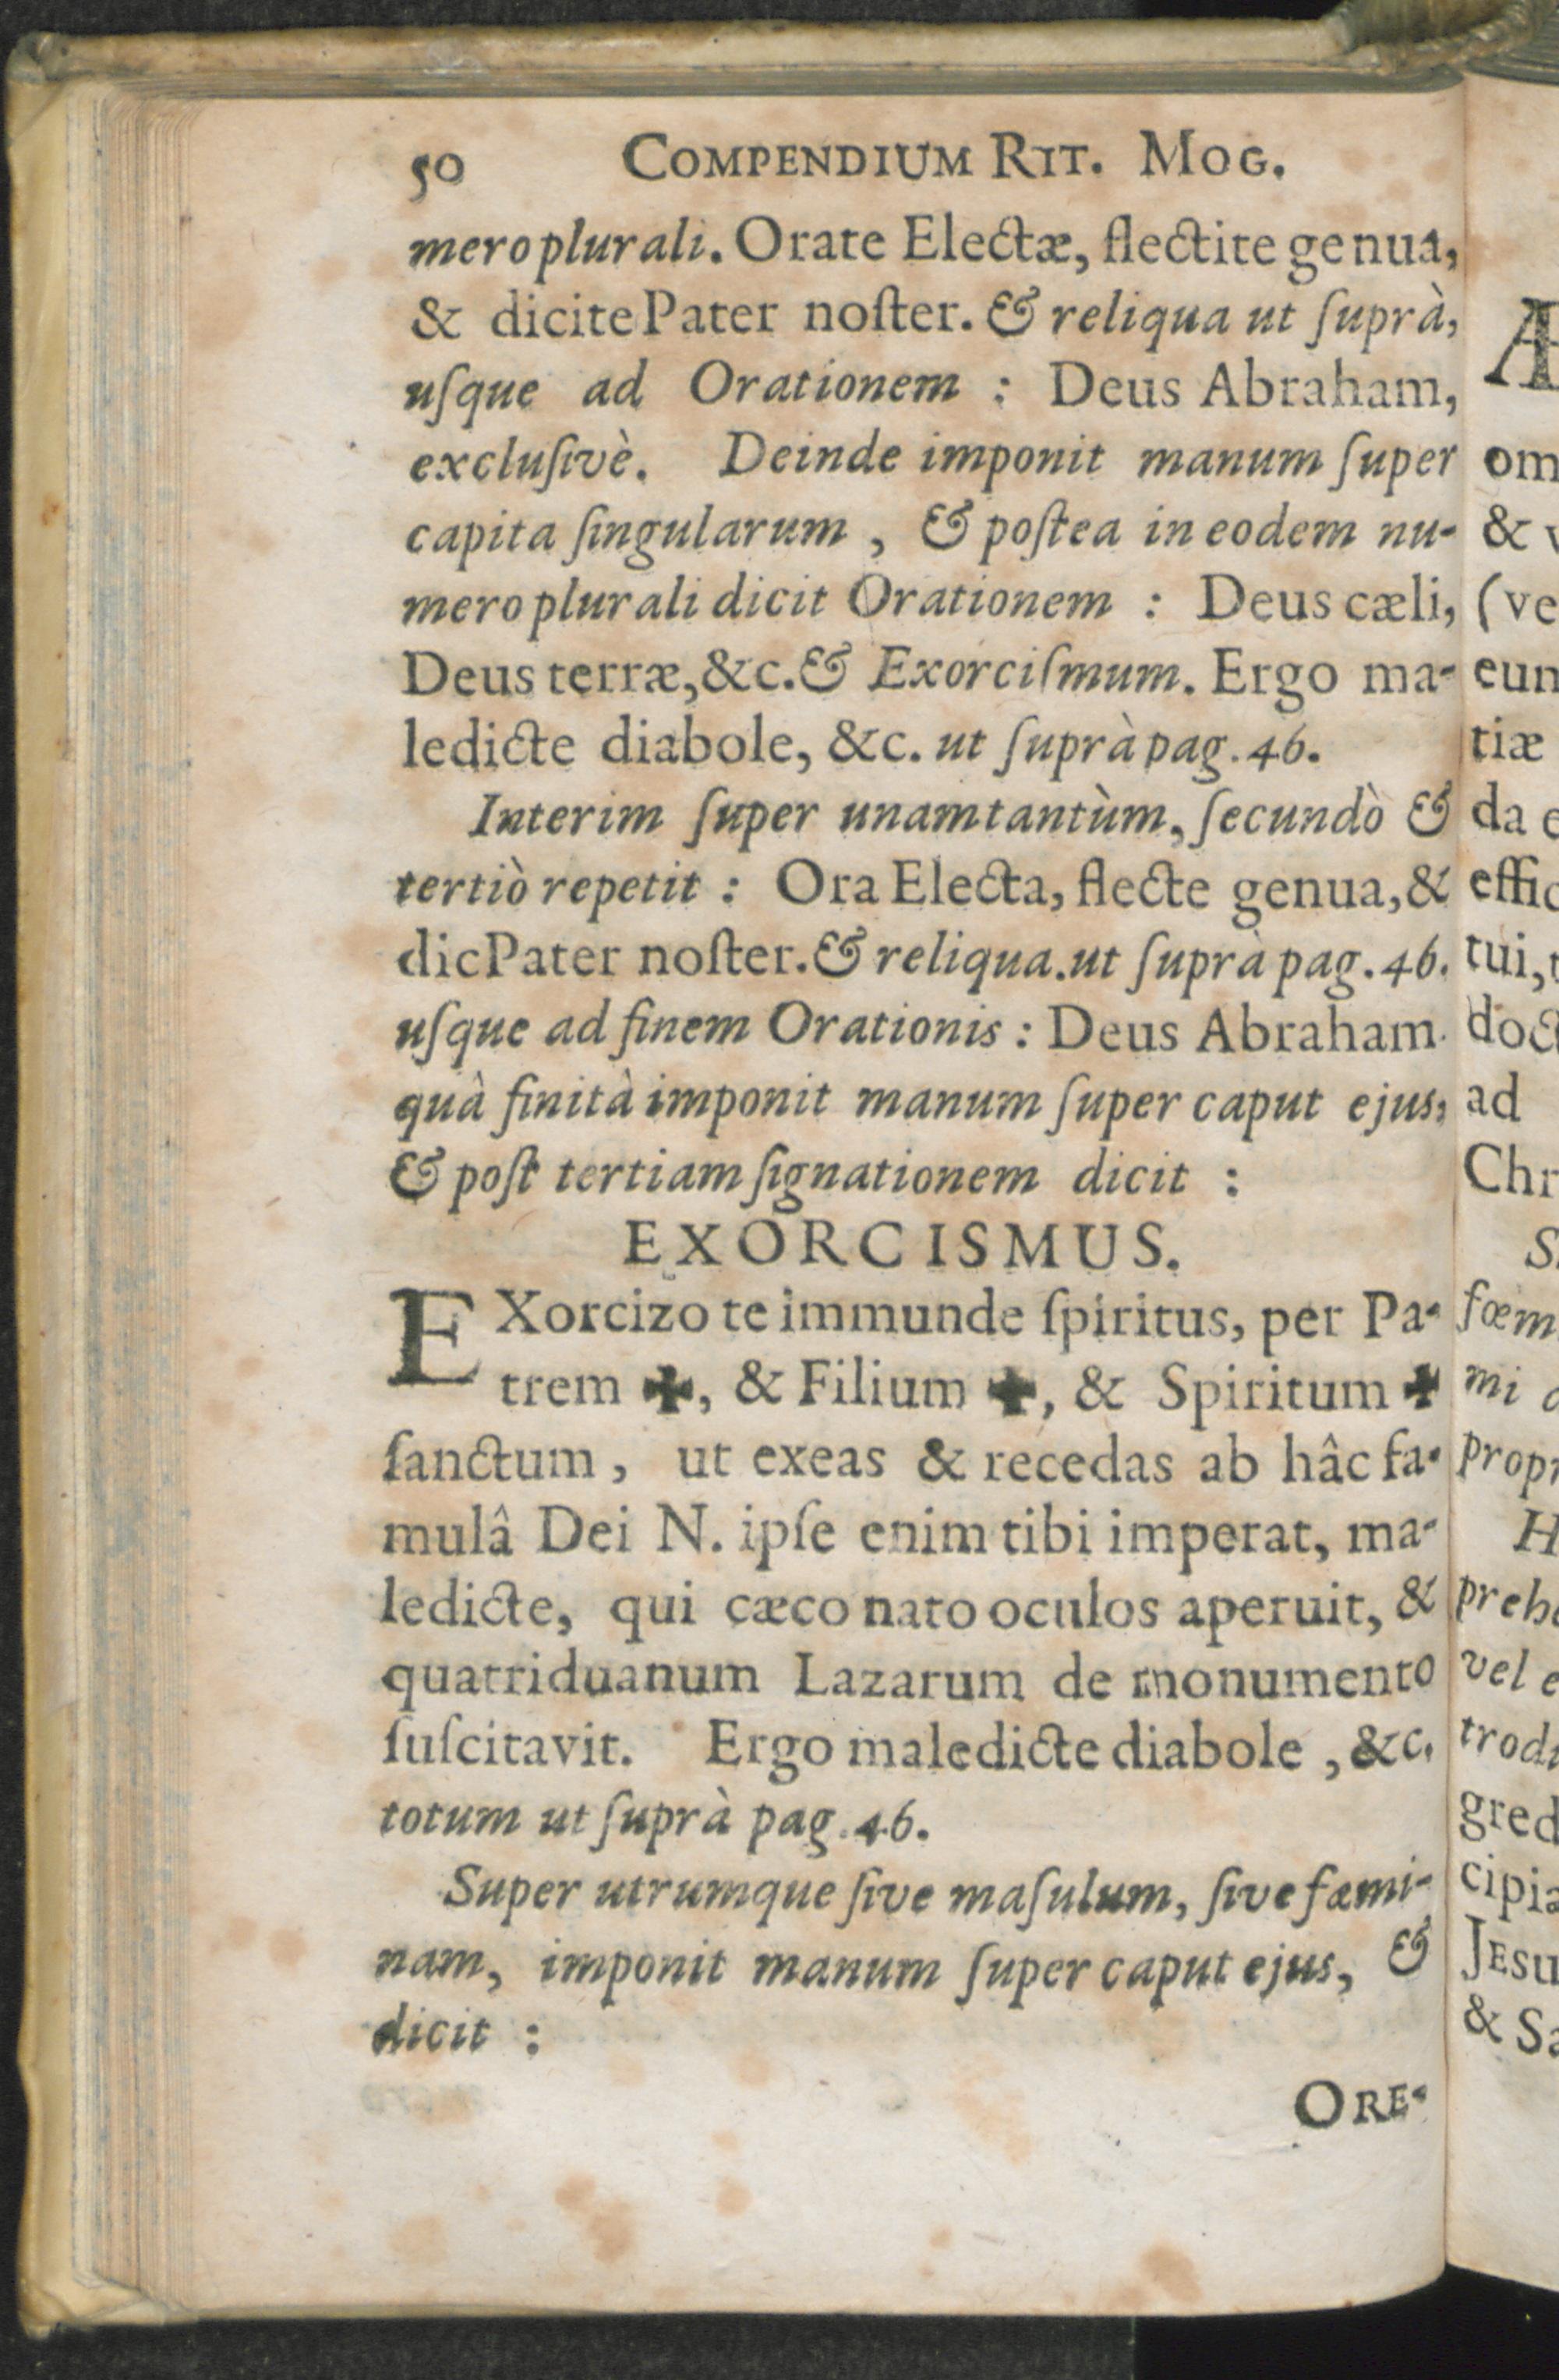 50 COMPENDIUM RIT. MOG.
mero plurali. Orate Electæ, flectite genua,
& dicite Pater noſter. & reliqua ut ſuprà,
uſque ad Orationem : Deus Abraham,
excluſivè. Deinde imponit manum ſuper
capita ſingularum , & poſtea in eodem nu-
mero plurali dicit Orationem : Deus cæli,
Deus terræ, &c. & Exorciſmum. Ergo ma-
ledicte diabole, &c. ut ſuprà pag. 46.
Interim ſuper unam tantùm, ſecundò &
tertiò repetit : Ora Electa, flecte genua, &
dic Pater noſter. & reliqua. ut ſuprà pag. 46.
uſque ad finem Orationis : Deus Abraham.
quà finità imponit manum ſuper caput ejus,
& poſt tertiam ſignationem dicit :
EXORCISMUS.
EXorcizo te immunde ſpiritus, per Pa-
trem ✠, & Filium ✠, & Spiritum ✠
ſanctum , ut exeas & recedas ab hâc fa-
mulâ Dei N. ipſe enim tibi imperat, ma-
ledicte, qui cæco nato oculos aperuit, &
quatriduanum Lazarum de monumento
ſuſcitavit. Ergo maledicte diabole , &c.
totum ut ſuprà pag. 46.
Super utrumque ſive maſulum, ſive fæmi-
nam, imponit manum ſuper caput ejus, &
dicit :
ORE-
Æ
om
& v
(ve
eun
tiæ
da e
effic
tui,
doct
ad
Chr
S
fœm
mi
propr
H
prehe
vel e
trodu
gred
cipia
JESU
& Sa